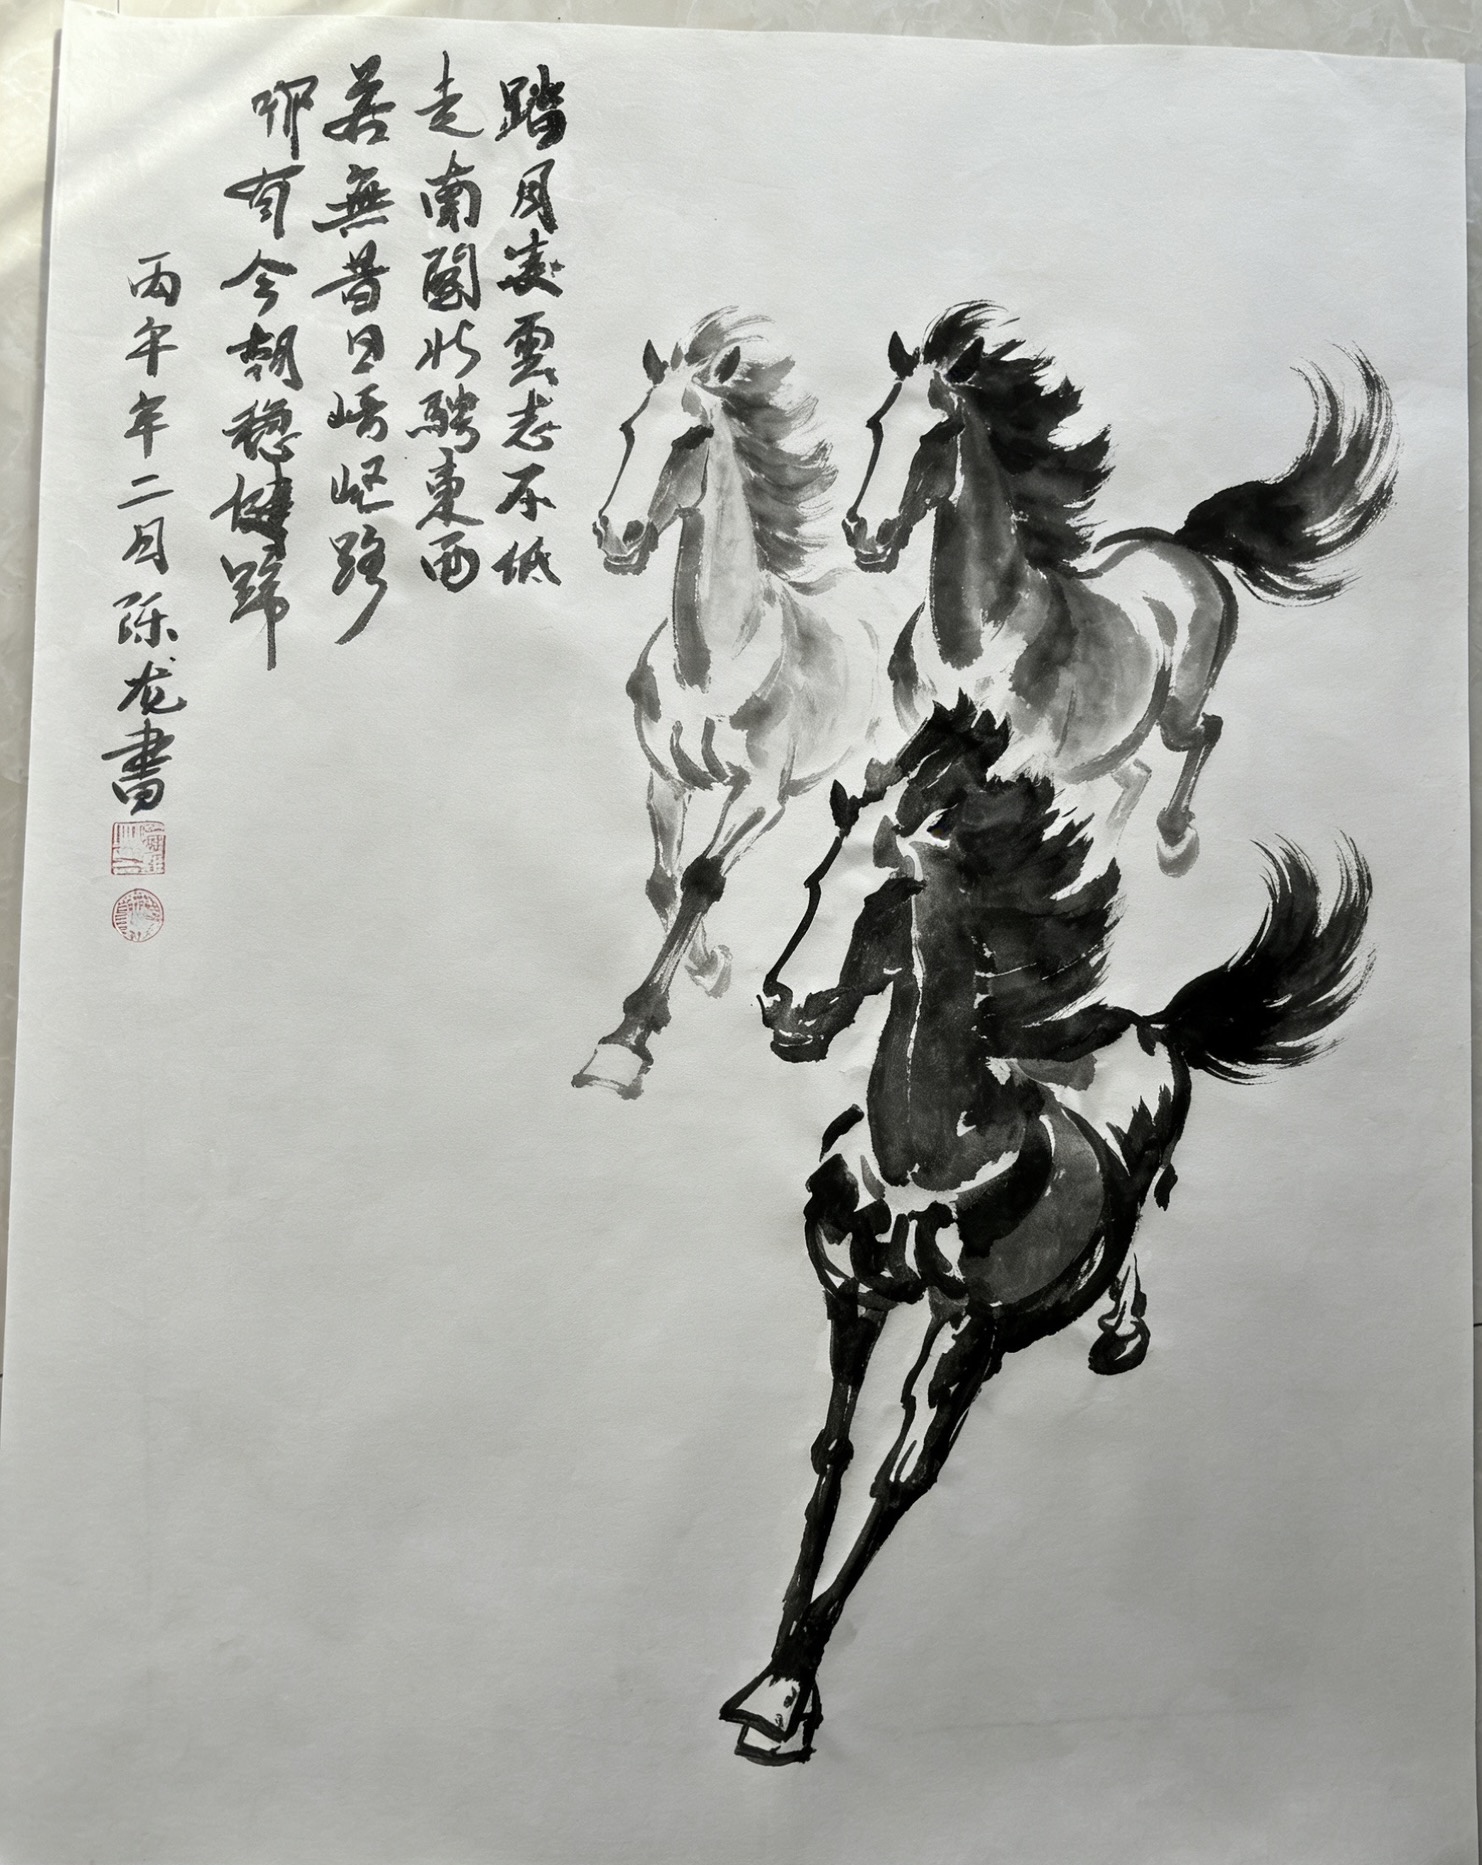 踏月凌雲志不低
走南闖北騁東西
若無昔日崎岖路
那有今朝穩健蹄
丙午年二月陈龙書